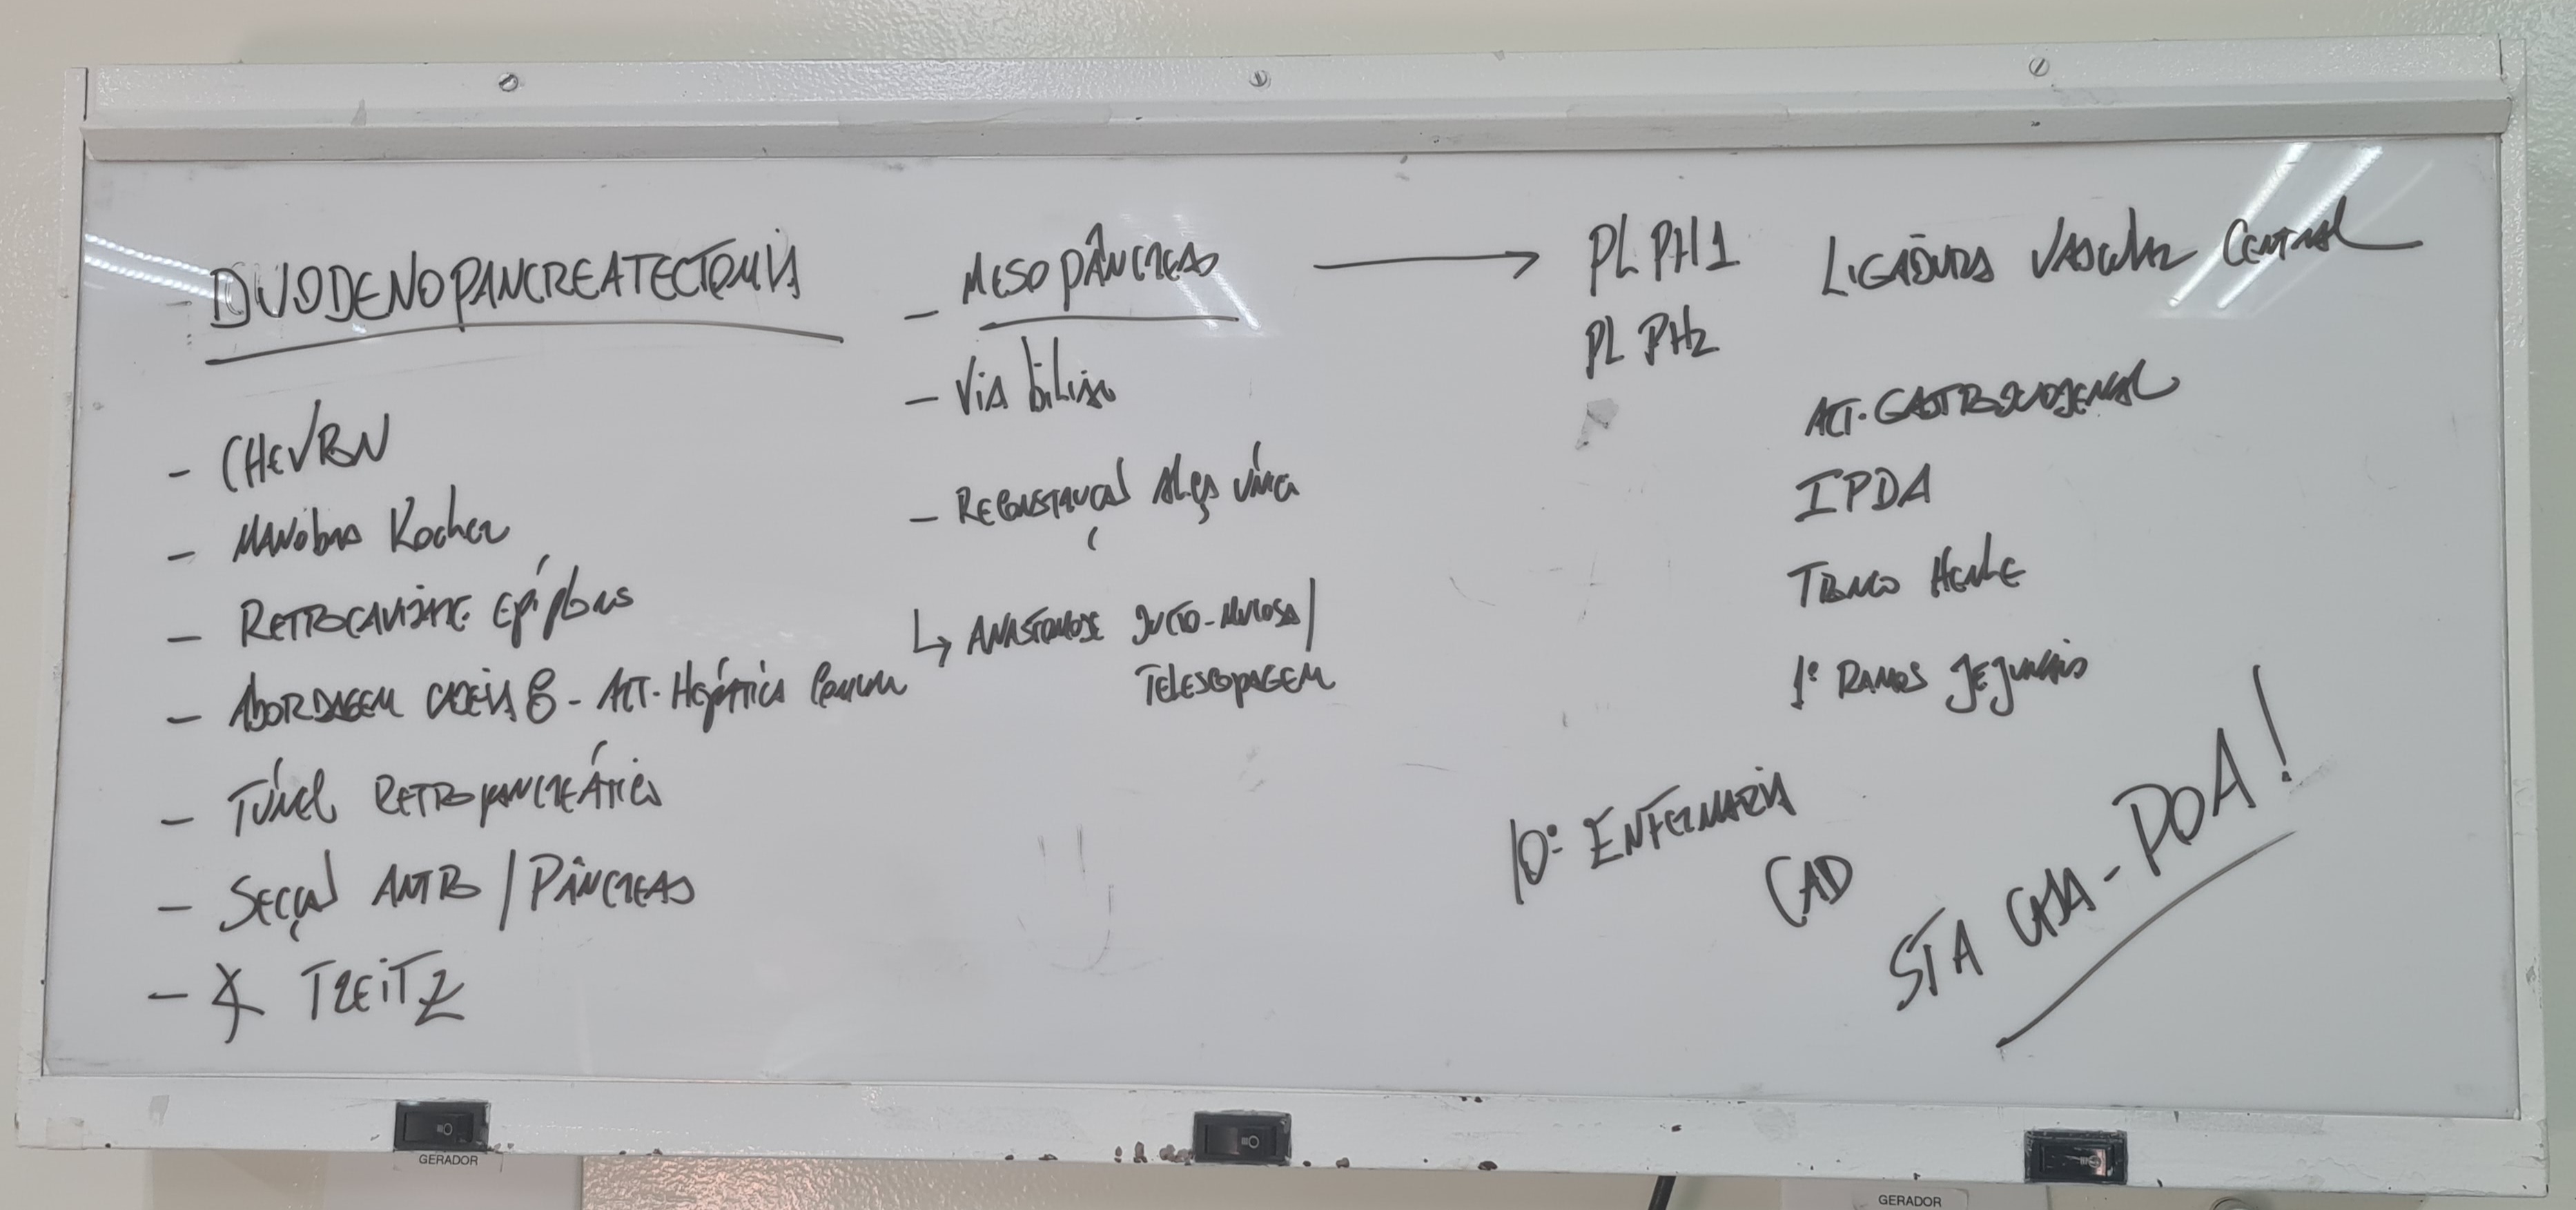 DUODENOPANCREATECTOMIA
- CHEVRON
- MANÓBRA Kocher
- RETROCAVIDADE Epíplons
- ABORDAGEM CADEIA 8 - ART. Hepática Comum
- Túnel RETROPANCREÁTICO
- Secção ANTRO / PÂNCREAS
- TREITZ
- MESOPÂNCREAS → PL PH1
PL PH2
- ViA biliar
- RECONSTRUÇÃO Alça única
↳ ANASTOMOSE DUCTO-MUCOSA/
TELESCOPAGEM
LIGADURA VASCULAR CENTRAL
ART. GASTRODUODENAL
IPDA
TRONCO HENLE
1º RAMOS JEJUNAIS
10º ENFERMARIA
CAD
STA CASA - POA!
GERADOR
GERADOR